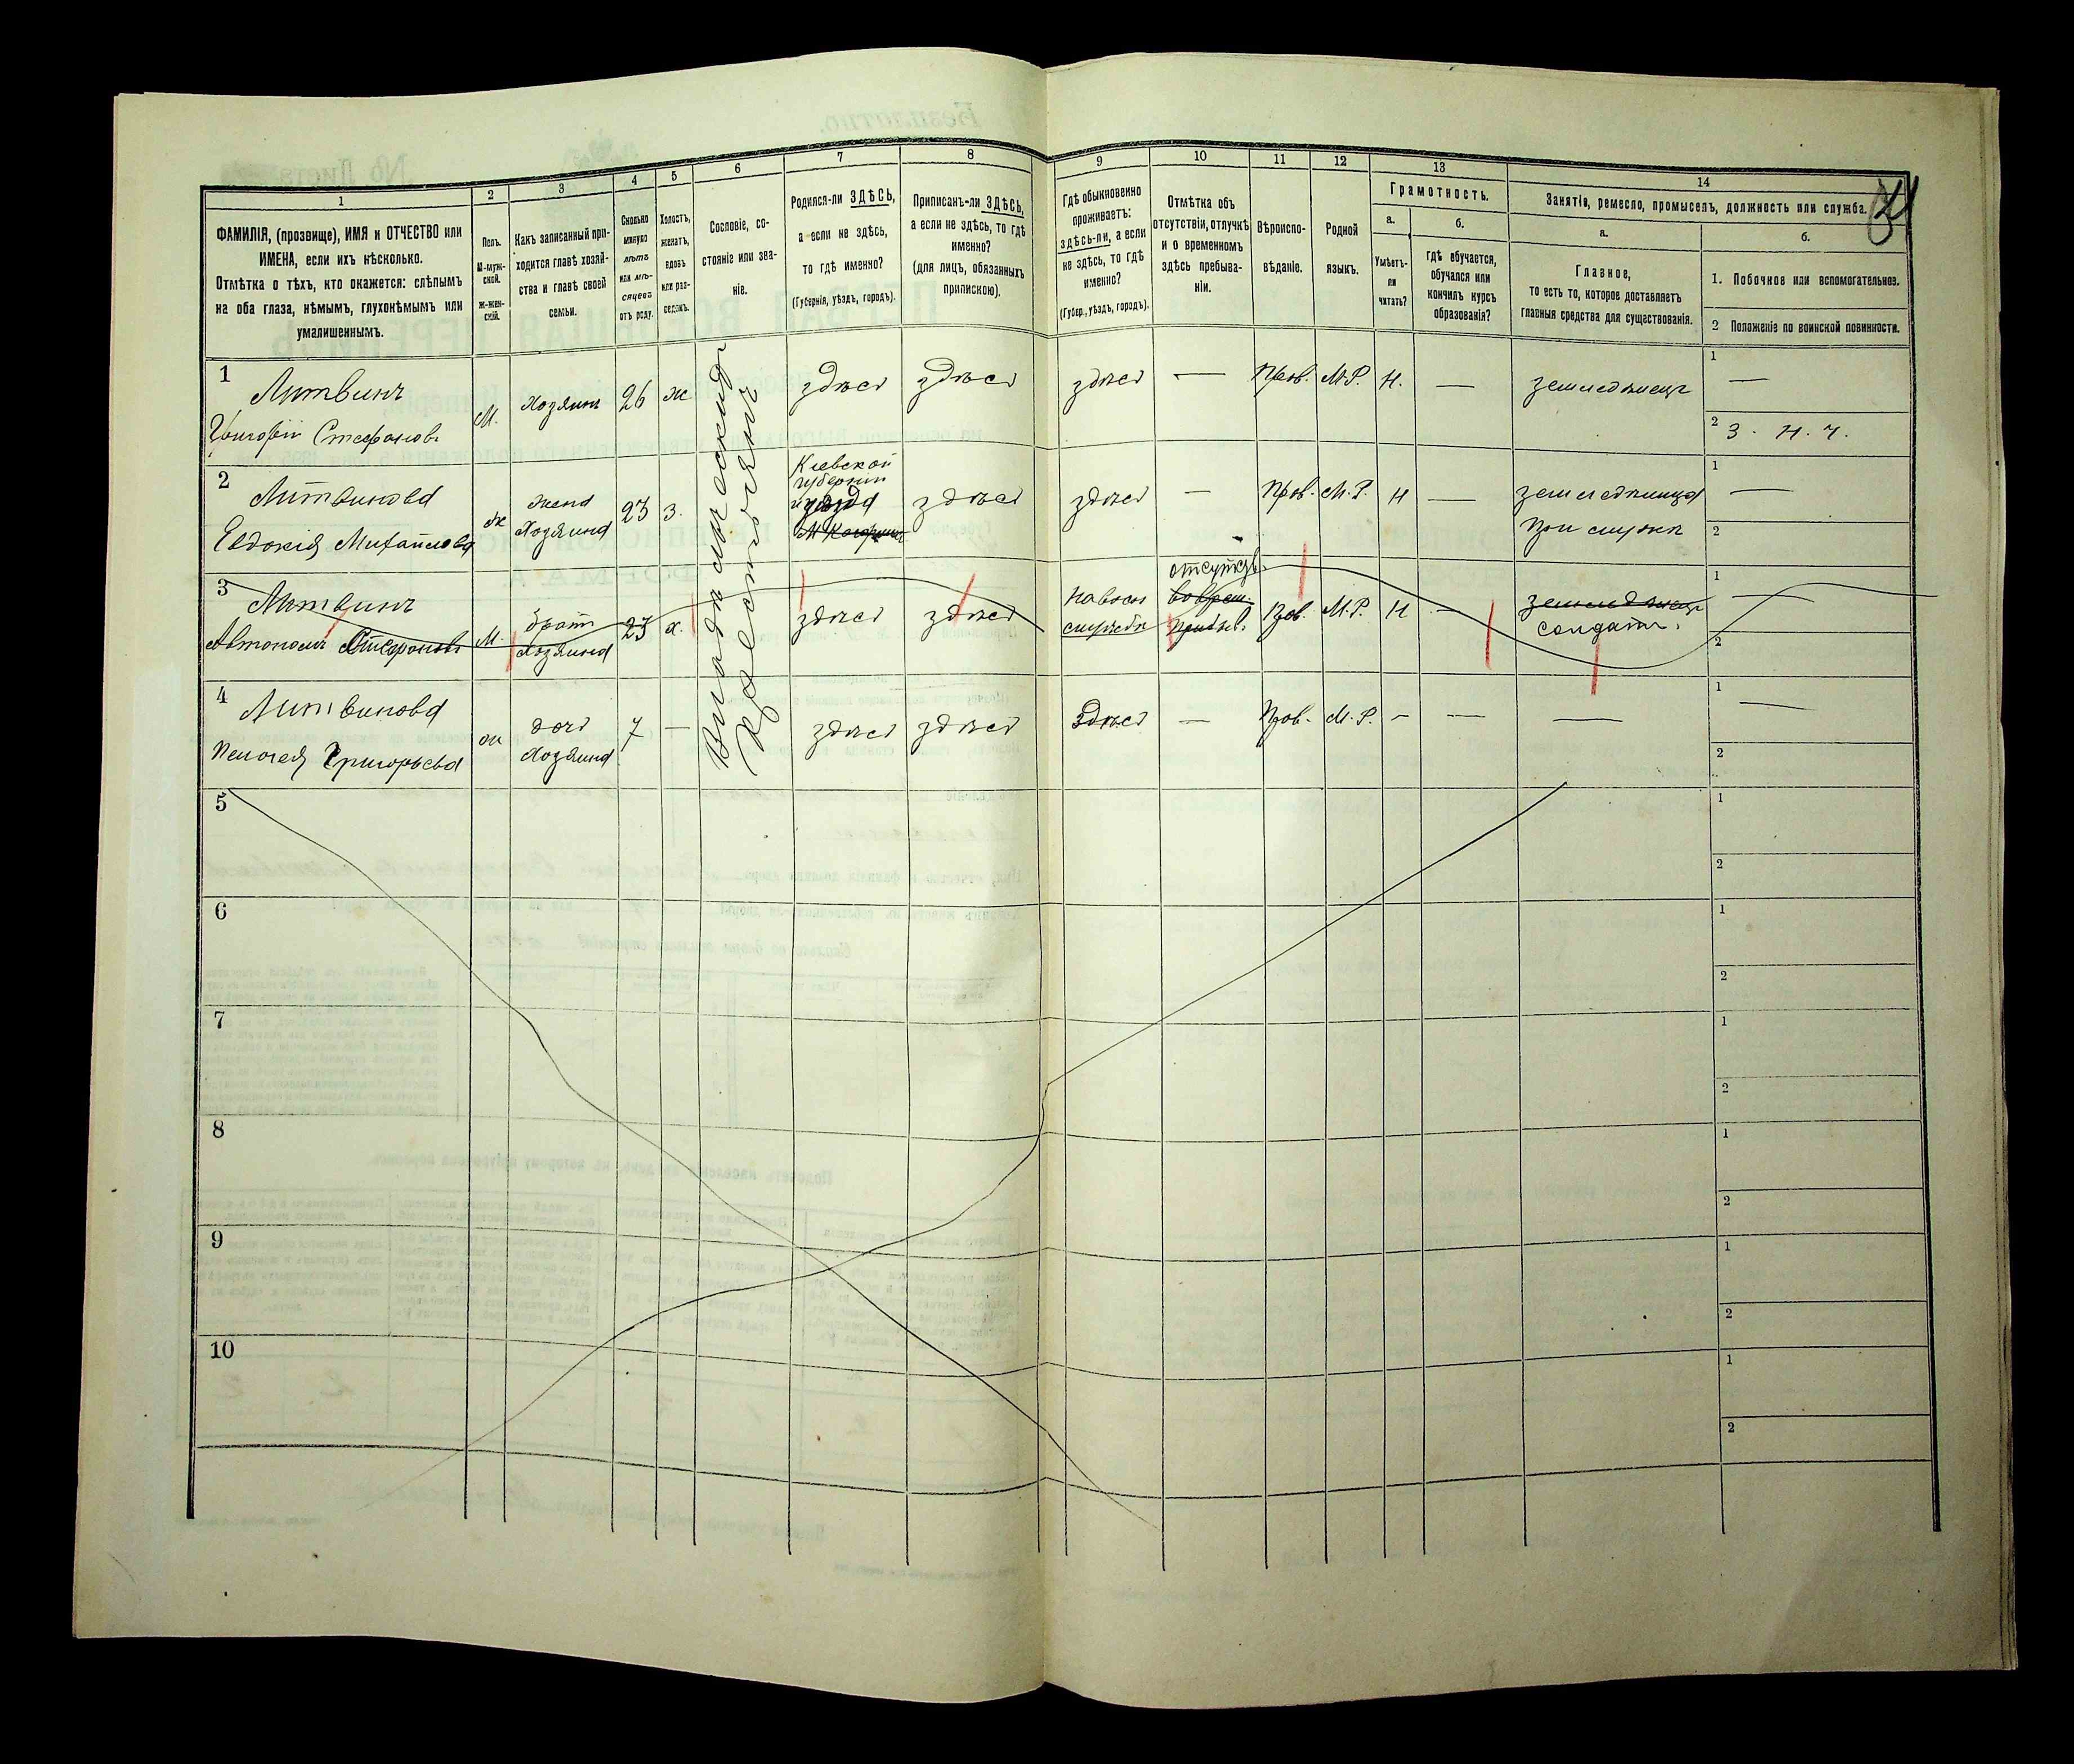 1
2
3
4
5
6
7
8
9
10
11
12
13
14
ФАМИЛІЯ, (прозвище), ИМЯ и ОТЧЕСТВО или
ИМЕНА, если ихъ нѣсколько.
Отмѣтка о тѣхъ, кто окажется: слѣпымъ
на оба глаза, нѣмымъ, глухонѣмымъ или
умалишеннымъ.
Полъ.
М-муж-
ской.
Ж-жен-
скій.
Какъ записанный при-
ходится главѣ хозяй-
ства и главѣ своей
семьи.
Сколько
минуло
лѣтъ
или мѣ-
сяцевъ
отъ роду.
Холостъ,
женатъ,
вдовъ
или раз-
веденъ.
Сословіе, со-
стояніе или зва-
ніе.
Родился-ли ЗДѢСЬ,
а если не здѣсь,
то гдѣ именно?
(Губернія, уѣздъ, городъ).
Приписанъ-ли ЗДѢСЬ,
а если не здѣсь, то гдѣ
именно?
(для лицъ, обязанныхъ
припискою).
Гдѣ обыкновенно
проживаетъ:
здѣсь-ли, а если
не здѣсь, то гдѣ
именно?
(Губер., уѣздъ, городъ).
Отмѣтка объ
отсутствіи, отлучкѣ
и о временномъ
здѣсь пребыва-
ніи.
Вѣроиспо-
вѣданіе.
Родной
языкъ.
Грамотность.
а.
б.
Умѣетъ-
ли
читать?
гдѣ обучается,
обучался или
кончилъ курсъ
образованія?
Занятіе, ремесло, промыселъ, должность или служба.
а.
б.
Главное,
то есть то, которое доставляетъ
главныя средства для существованія.
1. Побочное или вспомогательное.
2 Положеніе по воинской повинности.
1
Литвинъ
Григорій Стефановъ
М.
Хозяинъ
26
ж
здѣсь
здѣсь
здѣсь
—
Прав.
М.Р.
Н.
—
земледѣлецъ
1 —
2 З. Н. Ч.
2
Литвинова
Евдокія Михайлова
ж
жена
Хозяина
23
з.
Кіевской
губерніи
уѣзда
здѣсь
здѣсь
—
Прав.
М.Р.
Н
—
земледѣлица
при мужѣ
1 —
2
3
Литвинъ
Автономъ Стефановъ
М.
братъ
Хозяина
23
х.
здѣсь
здѣсь
на воен
службѣ
отсутст.
Прав.
М.Р.
Н
—
земледѣлецъ
солдатъ.
1 —
2
4
Литвинова
Пелагея Григорьева
ж
дочь
Хозяина
7
—
здѣсь
здѣсь
здѣсь
—
Прав.
М.Р.
—
—
—
1 —
2
5
1
2
6
1
2
7
1
2
8
1
2
9
1
2
10
1
2